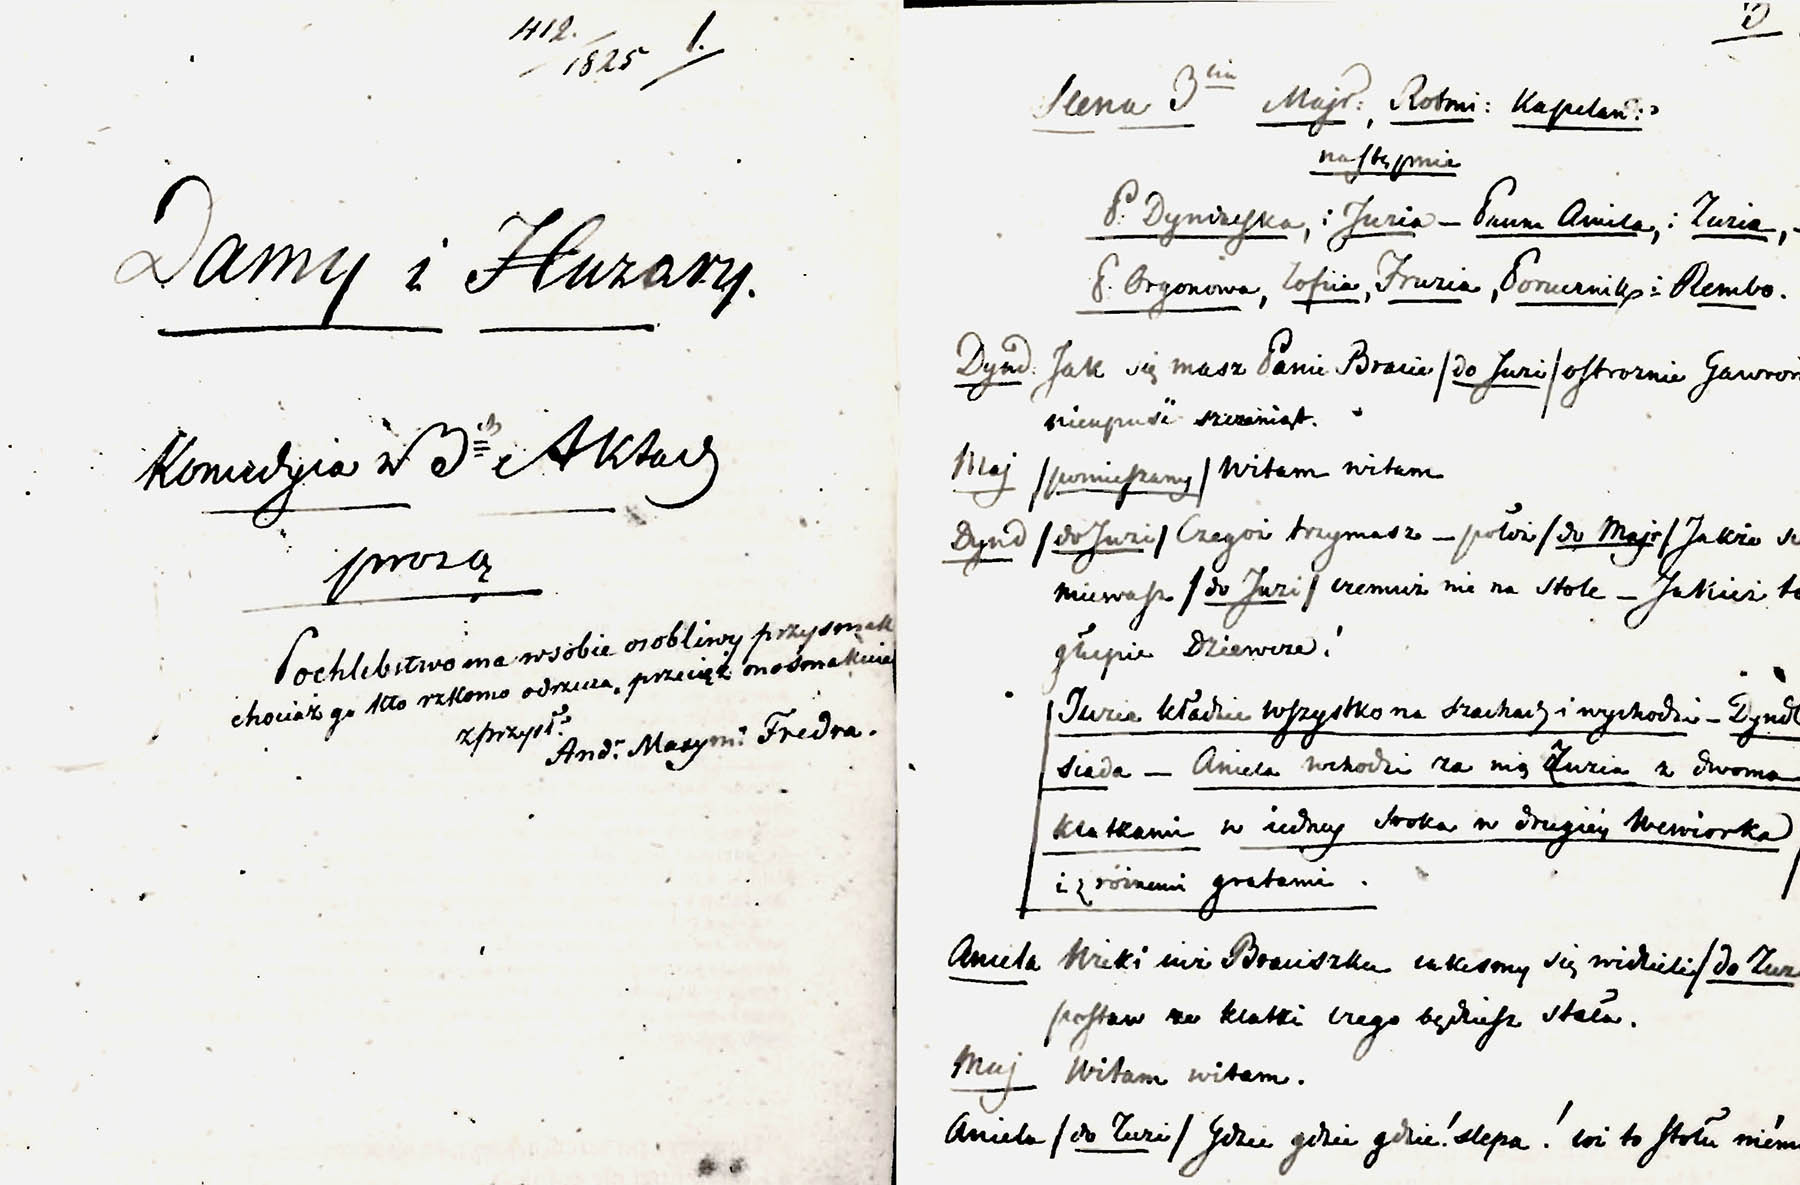 412.
1825
1.
Damy i Huzary.
Komedyia w 3ch Aktach
prozą
Pochlebstwo ma w sobie osobliwy przysmak
chociaż go kto rzkomo odrzuca, przecięż ono smakuie
z przysł:
And: Maxym: Fredra.
3
Scena 3cia Majr:, Rotmi: Kapelan:
następnie
P. Dyndalska, i Juzia – Panna Aniela, i Zuzia, –
P. Orgonowa, Zofiia, Fruzia, Porucznik i Rembo.
Dynd: Jak się masz Panie Bracie /do Juzi/ ostrożnie
nieupuść szczeniąt.
Maj /pomieszany/ Witam witam
Dynd /do Juzi/ Czegoż trzymasz – połóż /do Majr/ Jakże
miewasz /do Juzi/ czemuż nie na stole – Jakież
głupie Dziewcze!
Juzia kładzie wszystko na szachach i wychodzi –
siada – Aniela wchodzi za nią Zuzia z dwoma
klatkami w iedney sroka w drugiéy Wewiorka
i z różnemi gratami.
Aniela Wieki iuż Braciszku iakesmy się widzieli /do
postaw te klatki czego będziesz stała.
Maj Witam witam.
Aniela /do Zuzi/ Gdzie gdzie gdzie! slepa! to stołu